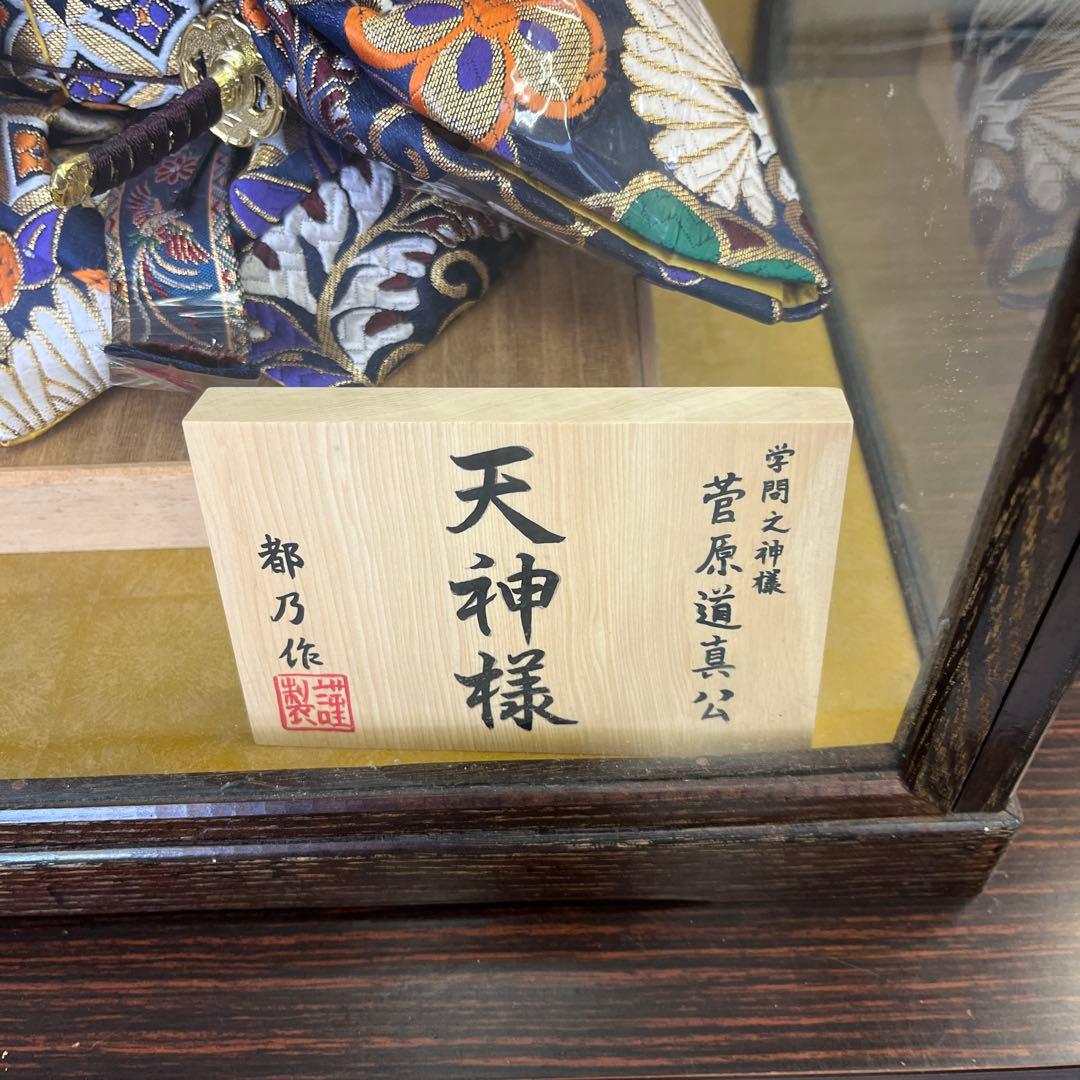 学問之神様
菅原道真公
天神様
都乃作
謹製